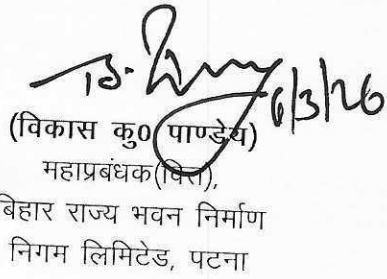 6/3/26
(विकास कु० पाण्डेय)
महाप्रबंधक(वित्त),
बिहार राज्य भवन निर्माण
निगम लिमिटेड, पटना